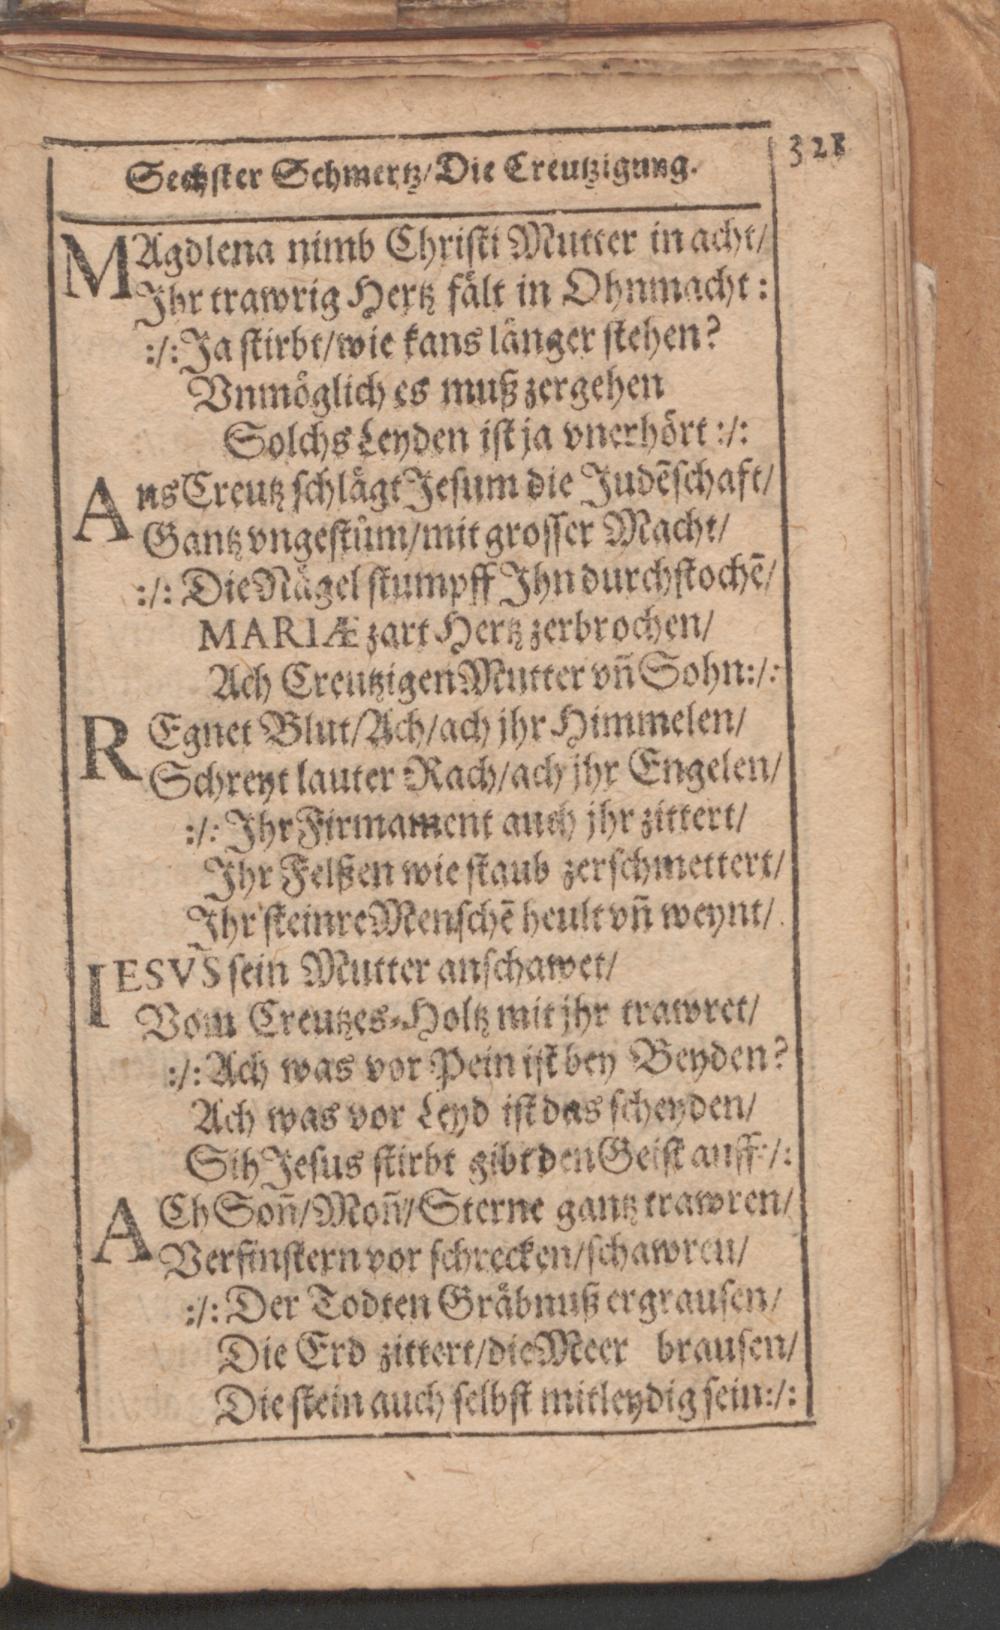 321
Sechſter Schmertz/Die Creutzigung.
MAgdlena nimb Chriſti Mutter in acht/
Ihr trawrig Hertz fålt in Ohnmacht:
:/: Ja ſtirbt/wie kans långer ſtehen?
Vnmöglich es muß zergehen
Solchs Leyden iſt ja vnerhört :/:
Ans Creutz ſchlågt Jeſum die Judēſchaft/
Gantz vngeſtům/mit groſſer Macht/
:/: Die Någel ſtumpff Ihn durchſtochē/
MARIÆ zart Hertz zerbrochen/
Ach Creutzigen Mutter vñ Sohn:/:
REgnet Blut/Ach/ach jhr Himmelen/
Schreyt lauter Rach/ach jhr Engelen/
:/: Ihr Firmament auch jhr zittert/
Ihr Felßen wie ſtaub zerſchmettert/
Ihr ſteinre Menſchē heult vñ weynt/.
IESVS ſein Mutter anſchawet/
Vom Creutzes-Holtz mit jhr trawret/
:/: Ach was vor Pein iſt bey Beyden?
Ach was vor Leyd iſt das ſcheyden/
Sih Jeſus ſtirbt gibt den Geiſt auff:/:
ACh Soñ/Moñ/Sterne gantz trawren/
Verfinſtern vor ſchrecken/ſchawren/
:/: Der Todten Gråbnuß ergrauſen/
Die Erd zittert/die Meer brauſen/
Die ſtein auch ſelbſt mitleydig ſein:/: